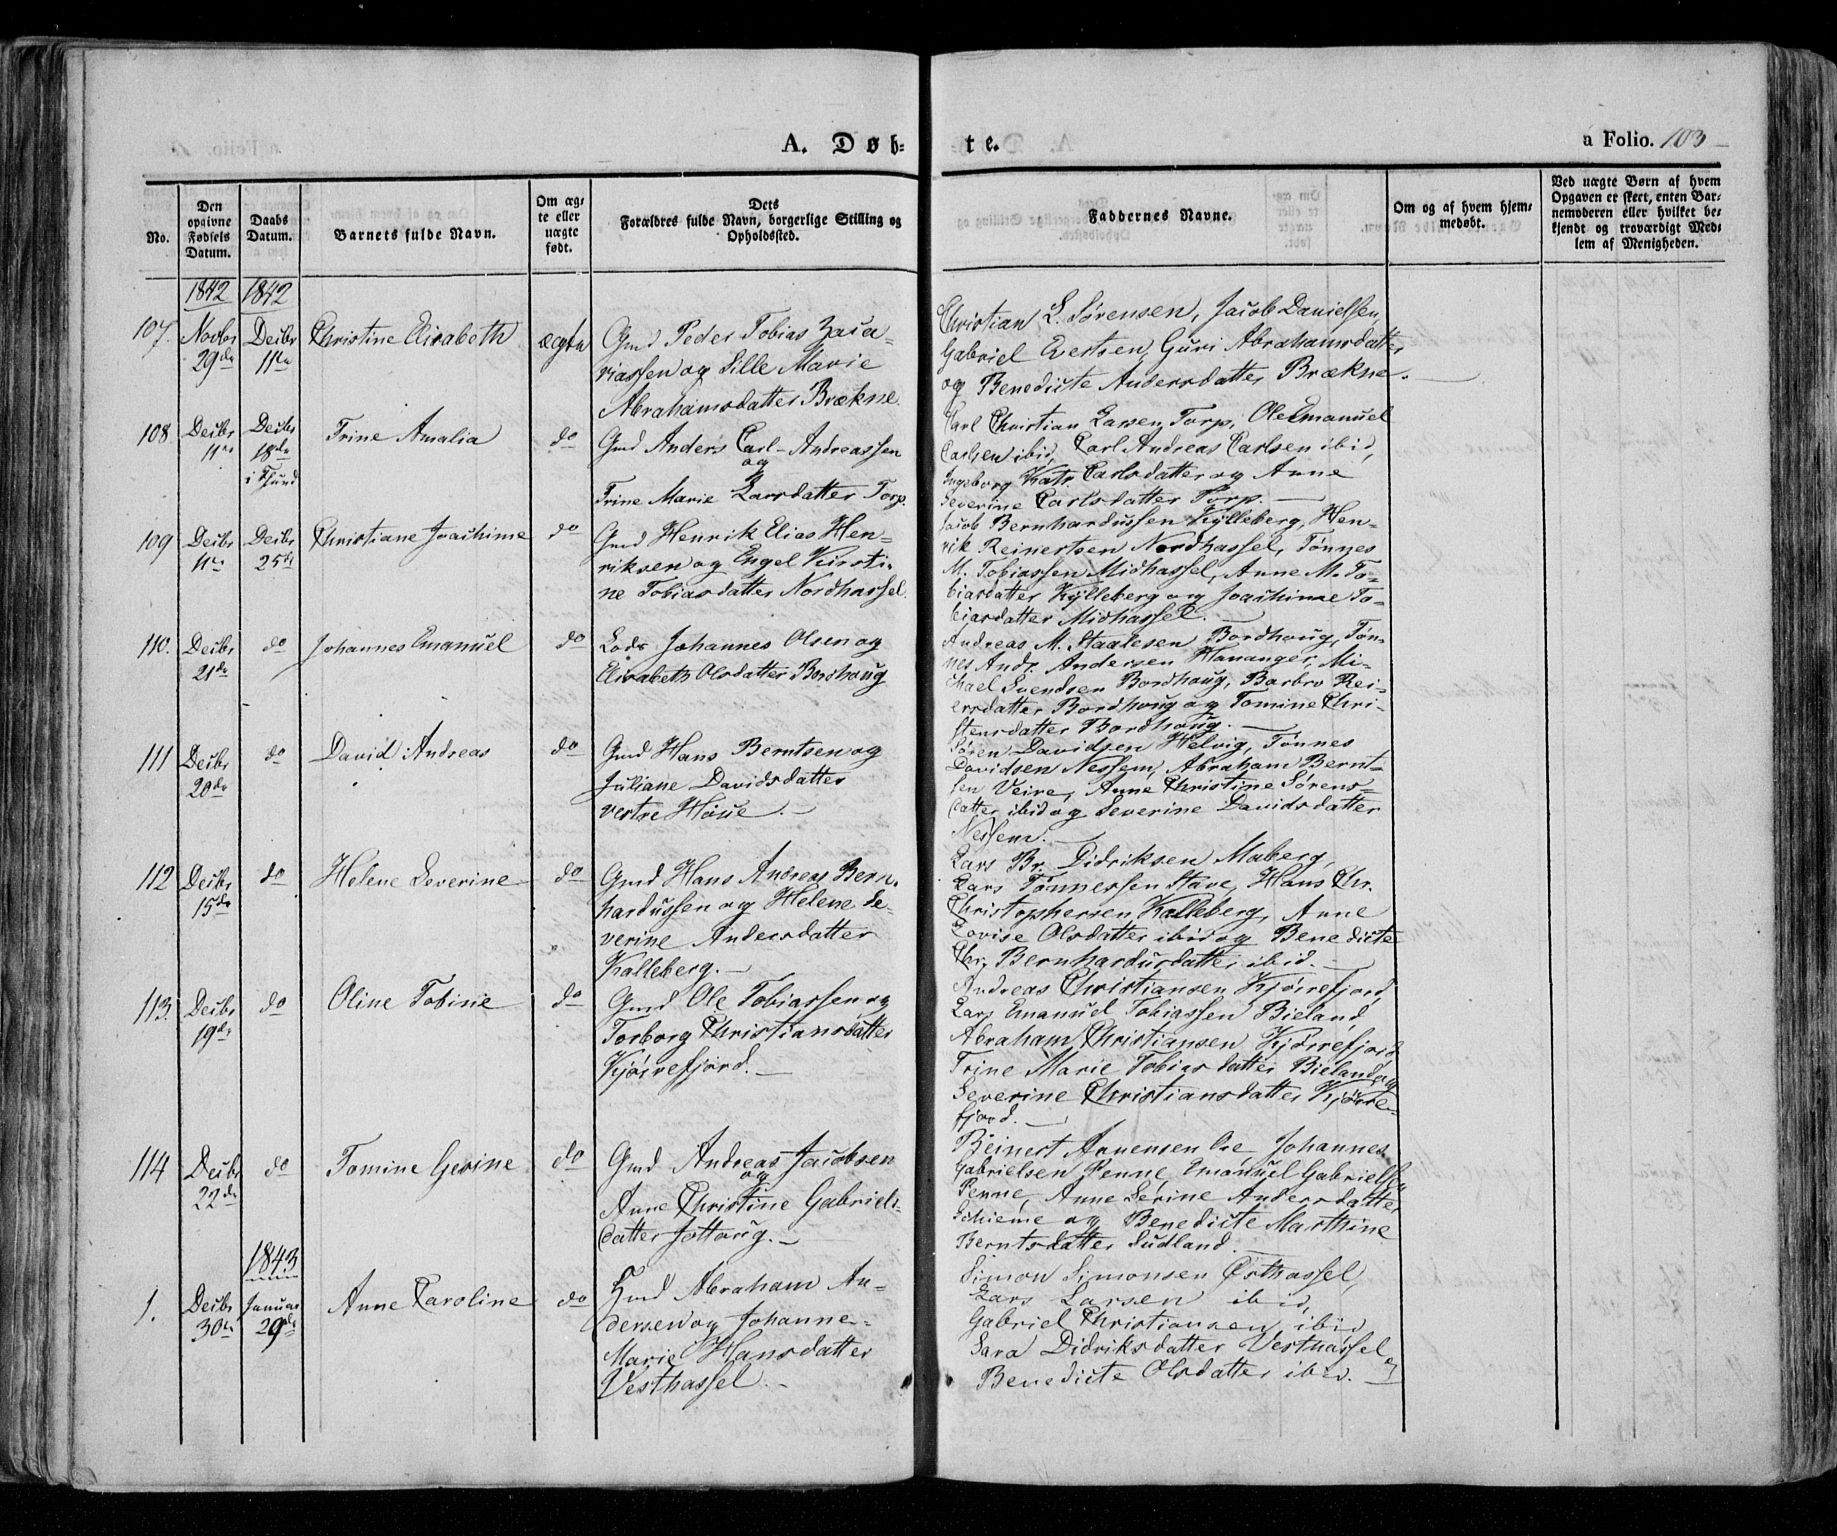 A. Døb-
te.
a Folio. 103
No.
Den
opgivne
Fødsels
Datum.
Daabs
Datum.
Barnets fulde Navn.
Om æg-
te eller
uægte
født.
Dets
Forældres fulde Navn, borgerlige Stilling og
Opholdssted.
Faddernes Navne.
Om og af hvem hjem-
medøbt.
Ved uægte Børn af hvem
Opgaven er skeet, enten Bar-
nemoderen eller hvilket be-
kjendt og troværdigt Med-
lem af Menigheden.
1842 1842
107.
Novbr
29de
Decbr
11te
Christine Elisabeth
ægte
Gmd Peder Tobias Zaca-
riassen og Sille Marie
Abrahamsdatter Brækne.
Christian L. Sørensen, Jacob Danielsen,
Gabriel Evertsen, Guri Abrahamsdatter
og Benedicte Andersdatter Brækne.
108
Decbr
11te
Decbr
18de
i Sund
Trine Amalia
do
Gmd Anders Carl-Andreassen
og
Trine Marie Larsdatter Torp.
Carl Christian Larsen Torp, Ole Emanuel
Carlsen ibid, Carl Andreas Carlsen ibid,
Ingeborg Katr. Carlsdatter og Anne
Severine Carlsdatter Torp.
109
Decbr
11te
Decbr
25de
Christiane Joachime
do
Gmd Henrik Elias Hen-
riksen og Engel Kirsti-
ne Tobiasdatter Nordhassel.
Jacob Bernhardussen Kylleberg, Hen-
rik Reinertsen Nordhassel, Tønnes
M. Tobiassen Midhassel, Anne M. To-
biasdatter Kylleberg og Joachime To-
biasdatter Midhassel.
110.
Decbr
21de
do
Johannes Emanuel
do
Lods Johannes Olsen og
Elisabeth Olsdatter Bordhoug
Andreas M. Staalesen Bordhoug, Tøn-
nes Andr. Andersen Hananger, Mi-
chael Svendsen Bordhoug, Barbro Rei-
ersdatter Bordhoug og Tomine Chri-
stensdatter Bordhoug.
111
Decbr
20de
do
David Andreas
do
Gmd Hans Berntsen og
Juliane Davidsdatter
vestre Houe.
Søren Davidsen Helvig, Tønnes
Davidsen Nessem, Abraham Bernt-
sen Veire, Anne Christine Sørens-
datter ibid og Severine Davidsdatter
Nessem.
112
Decbr
15de
do
Helene Severine
do
Gmd Hans Andreas Bern-
hardussen og Helene Se-
verine Andersdatter
Kalleberg.
Lars Br. Didriksen Maberg,
Lars Tønnessen Stave, Hans Chr.
Christophersen Kalleberg, Anne
Lovise Olsdatter ibid og Benedicte
Chr. Bernhardusdatter ibid.
113.
Decbr
19de
do
Oline Tobine
do
Gmd Ole Tobiassen og
Torborg Christiansdatter
Kjørrefjord.
Andreas Christiansen Kjørrefjord
Lars Emanuel Tobiassen Bieland,
Abraham Christiansen Kjørrefjord
Trine Marie Tobiasdatter Bieland og
Severine Christiansdatter Kjørre-
fjord.
114
Decbr
22de
do
Tomine Gesine
do
Gmd Andreas Jacobsen
og
Anne Christine Gabriels-
datter Jottoug.
Reinert Aanensen Ore, Johannes
Gabrielsen Penne, Emanuel Gabrielsen
Penne, Anne Serine Andersdatter
Schieme og Benedicte Marthine
Berntsdatter Sudland.
1843
1.
Decbr
30te
Januar
29de
Anne Caroline
do
Hmd Abraham An-
dersen og Johanne-
Marie Hansdatter
Vesthassel.
Simon Simonsen Østhassel,
Lars Larsen ibid,
Gabriel Christiansen ibid
Sara Didriksdatter Vesthassel og
Benedicte Olsdatter ibid.